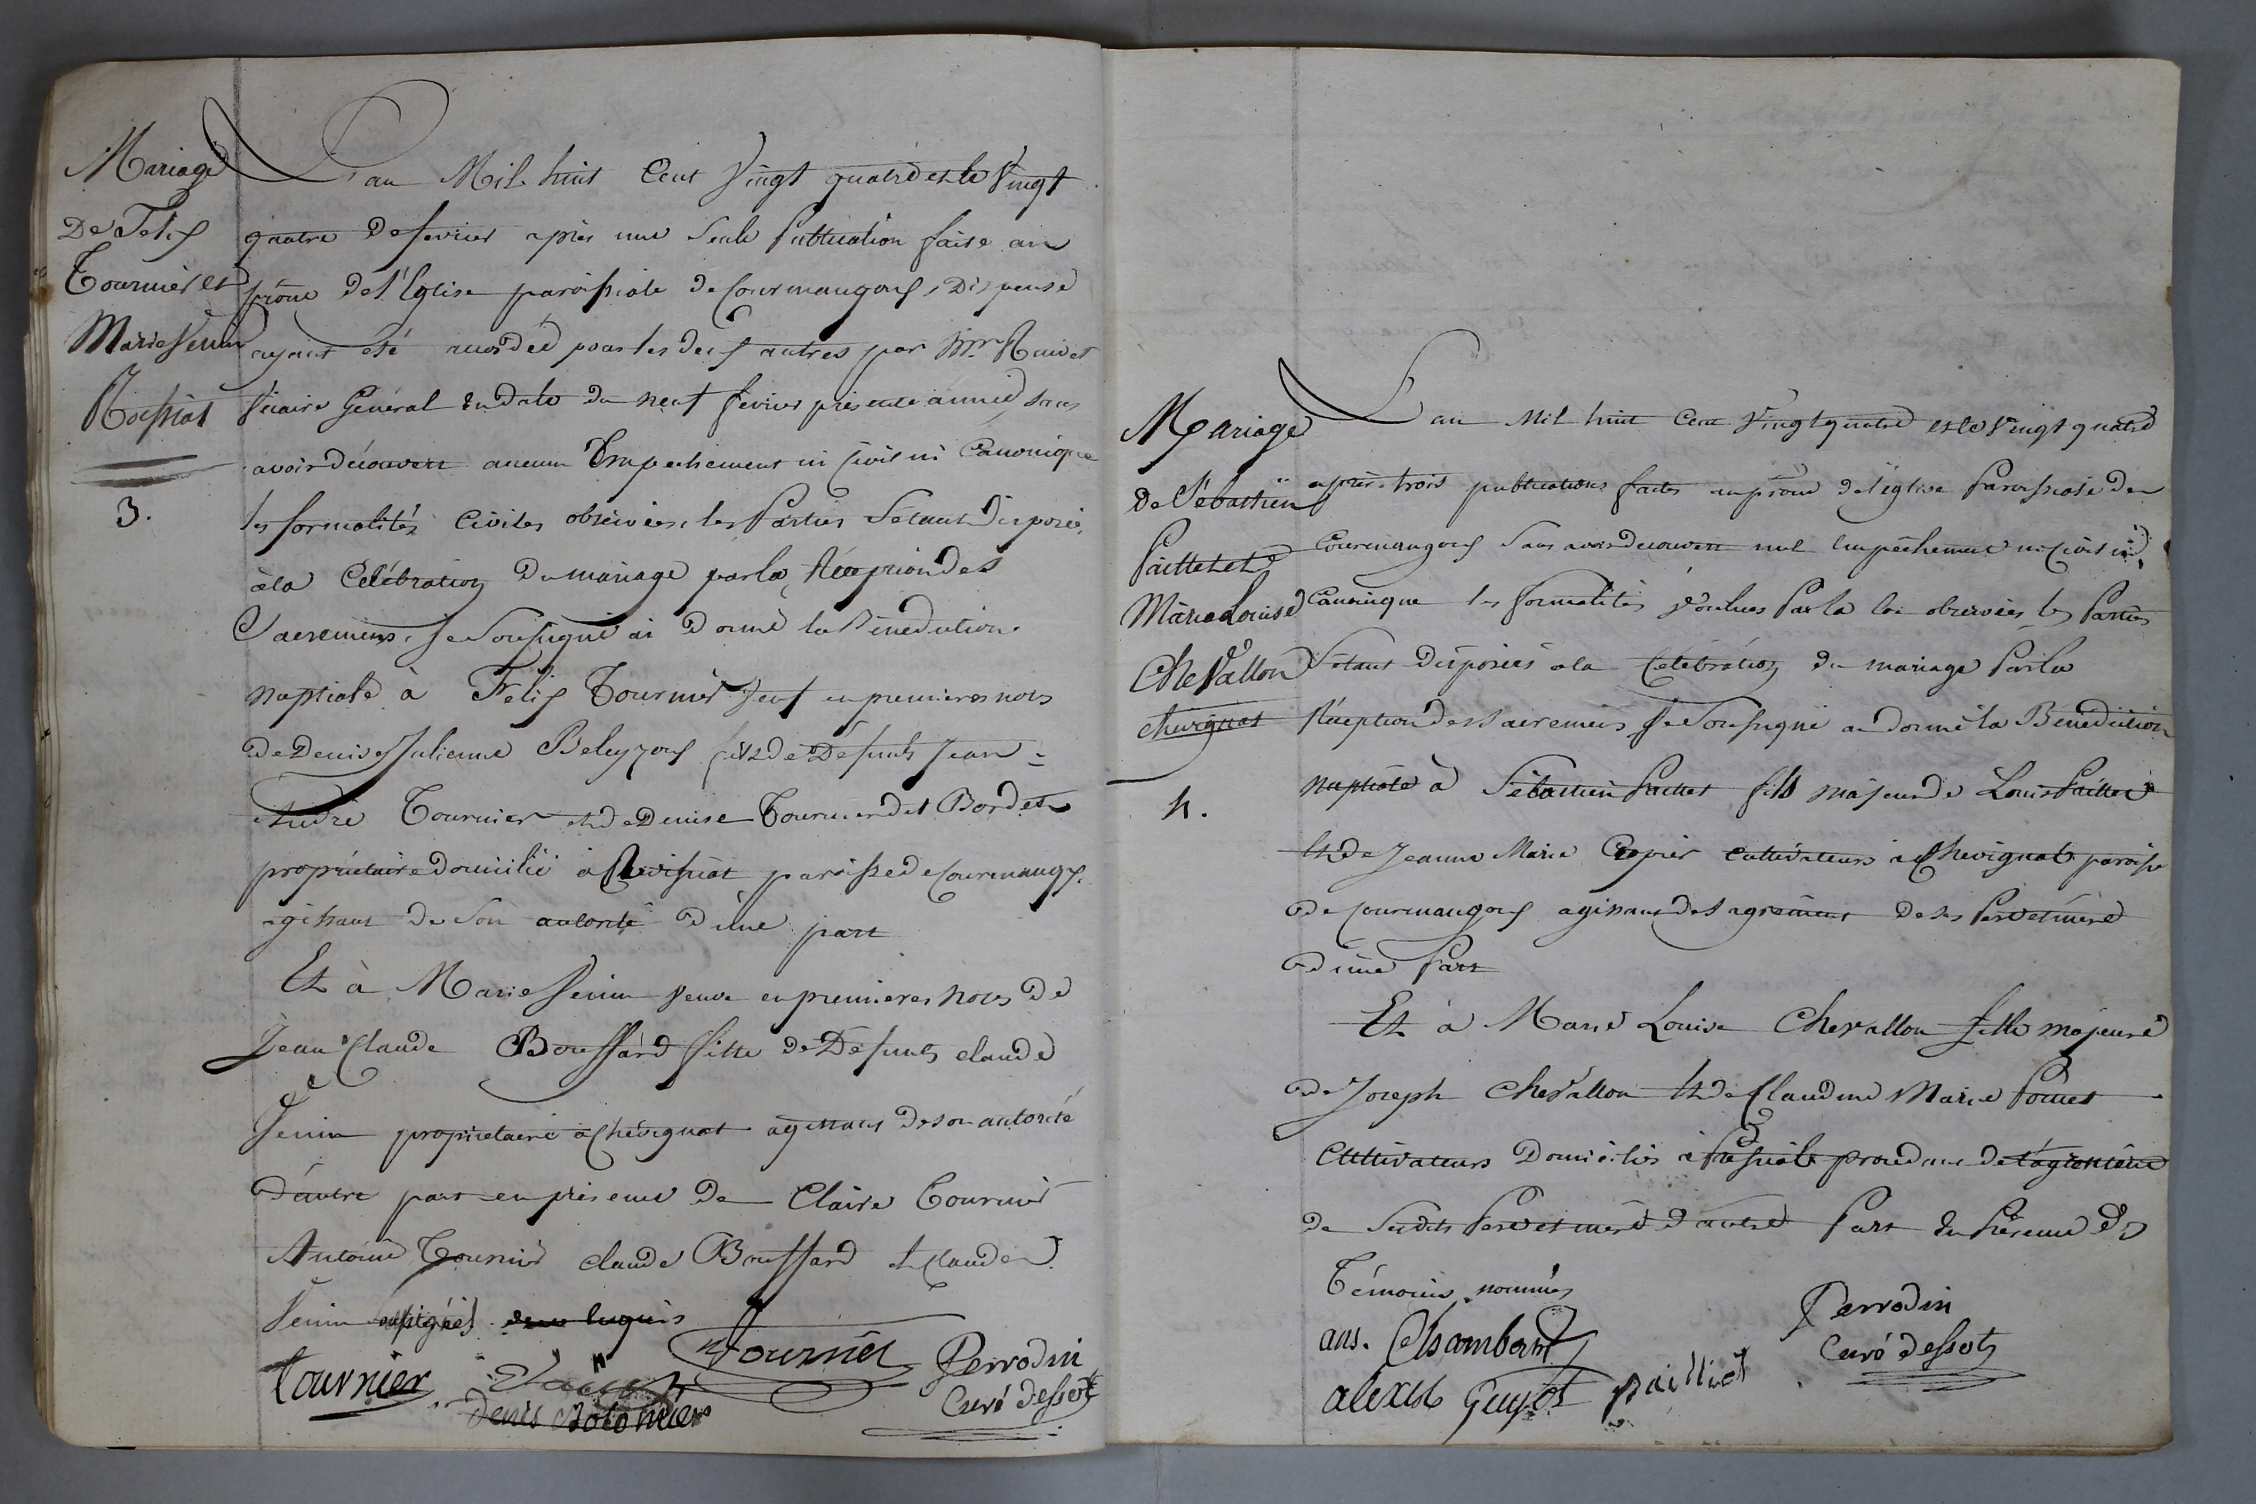 Mariage
De Felix
Tournier et
Marie Venin
Rossiat
3.
L'an Mil huit Cent Vingt quatre et le Vingt
quatre de fevrier après une Seule Publication faite au
prône de l'Eglise paroissiale de Courmangoux, Dispense
ayant été accordée pour les deux autres par Mr Ruivet
Vicaire Général en date du neuf fevrier présente année, sans
avoir découvert aucun Empechement ni Civil ni Canonique
les formalités Civiles observées, les Parties S'étant disposées
à la Célébration Du mariage par la Réception des
Sacremens, Je Soussigné ai donné la Bénédiction
nuptiale à Felix Tournier Veuf en premieres noces
de Denise Julienne Beleyzoux fils de Défunts Jean-
André Tournier et de Denise Tournier des Bordes
propriétaire domicilié à Chevissiat paroisse de Courmangx.
agissant de Son autorité d'une part
Et à Marie Venin Veuve en premieres noces de
Jean Claude Bouffard fille de Défunts claude
Venin propriétaire à Chevignat agissant de son autorité
d'autre part en présence de Claire Tournier
Antoine Tournier claude Bouffard et claude
Venin soussignés de ce requis
Tournier
Tournier
Perrodin
Curé desserv
Denis Bolomier
Mariage
de Sébastien
Paillet et
Marie Louise
Chevallon
chevignat
4.
L'an Mil huit Cent Vingt quatre et le Vingt quatre
après trois publications faites au prône de l'église Paroissiale de
Courmangoux Sans avoir découvert nul Empêchement ni Civil ni
Canonique les formalités Voulues Par la loi observées les Parties
S'étant disposées à la Célébration du mariage Par la
Réception des Sacremens Je Soussigné ai donné la Bénédiction
nuptiale à Sébastien Paillet fils majeur de Louis Paillet
et de Jeanne Marie cultivateurs à Chevignat paroisse
de Courmangoux agissant de l'agrément de Ses Pere et mère
d'une Part
Et à Marie Louise Chevallon fille majeure
de Joseph Chevallon et de Claudine Marie
Cultivateurs Domiciliés à procédant de l'agrément
de Susdits Pere et mere d'autre Part En Présence des
Témoins nommés
Perrodin
Curé desserv
ans. Chambard
alexis Guyot pailliet